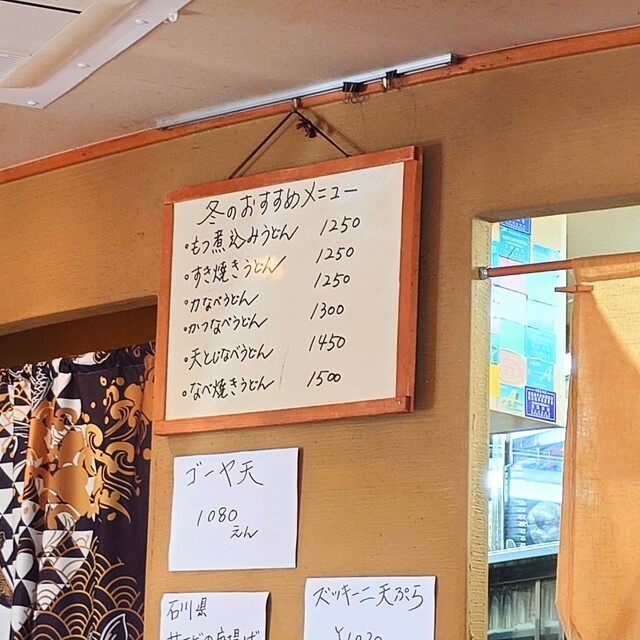 冬のおすすめメニュー
・もつ煮込みうどん 1250
・すき焼きうどん 1250
・力なべうどん 1250
・かつなべうどん 1300
・天とじなべうどん 1450
・なべ焼きうどん 1500
ゴーヤ天
1080
えん
石川県
ズッキーニ天ぷら